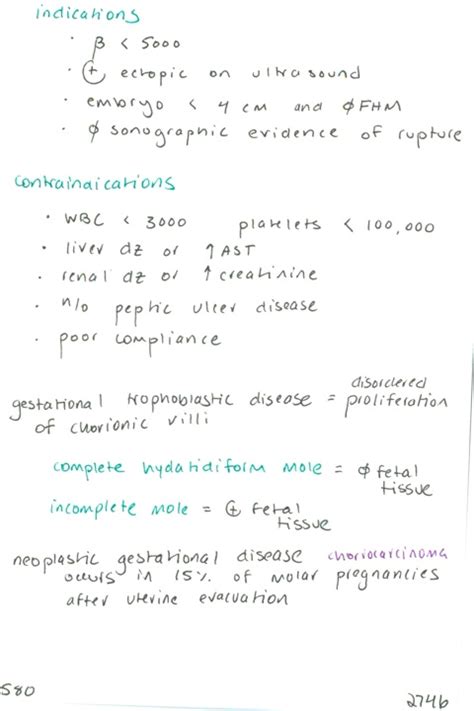 indications
· β < 5000
· ⊕ ectopic on ultrasound
· embryo < 4 cm and ϕFHM
· ϕ sonographic evidence of rupture
contraindications
· WBC < 3000 platelets < 100,000
· liver dz or ↑AST
· renal dz or ↑creatinine
· n/o peptic ulcer disease
· poor compliance
disordered
gestational trophoblastic disease = proliferation
of chorionic villi
complete hydatidiform mole = ϕ fetal
tissue
incomplete mole = ⊕ fetal
tissue
neoplastic gestational disease choriocarcinoma
occurs in 15% of molar pregnancies
after uterine evacuation
580
2746